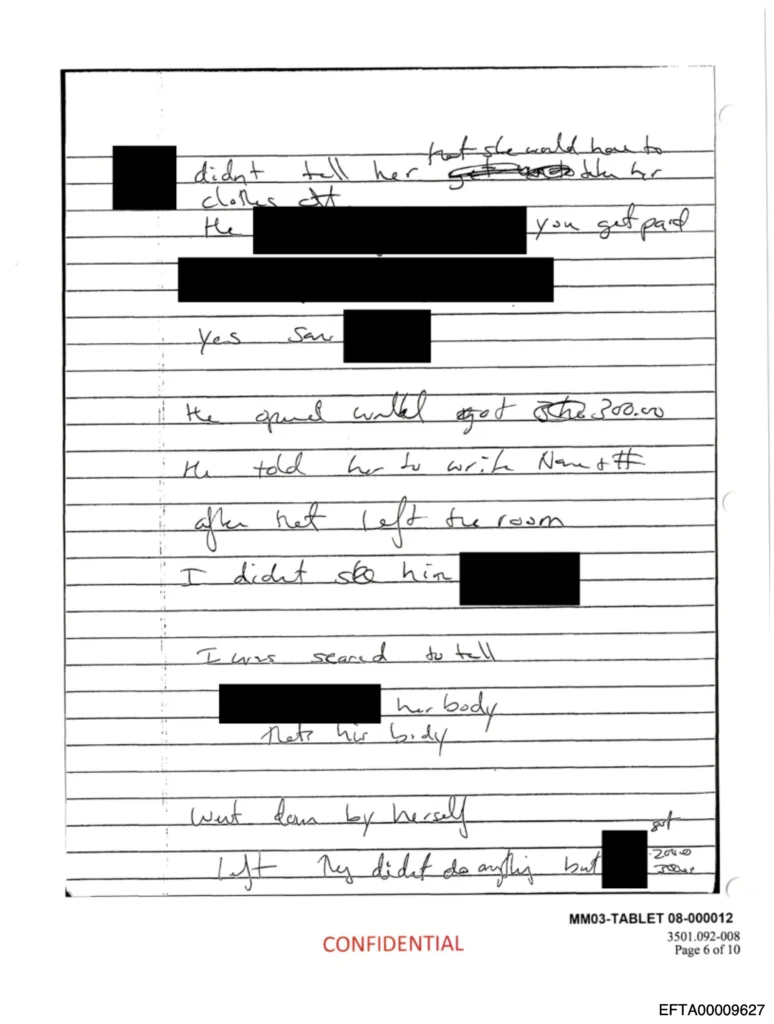 that she would have to
didn't tell her take her
clothes off
He you get paid
yes saw
He opened wallet got 300.00
He told her to write Name + #
after that left the room
I didnt see him
I was scared to tell
her body
that's his body
Went down by herself
left They didnt do anything but got
200.00
MM03-TABLET 08-000012
3501.092-008
CONFIDENTIAL
Page 6 of 10
EFTA00009627